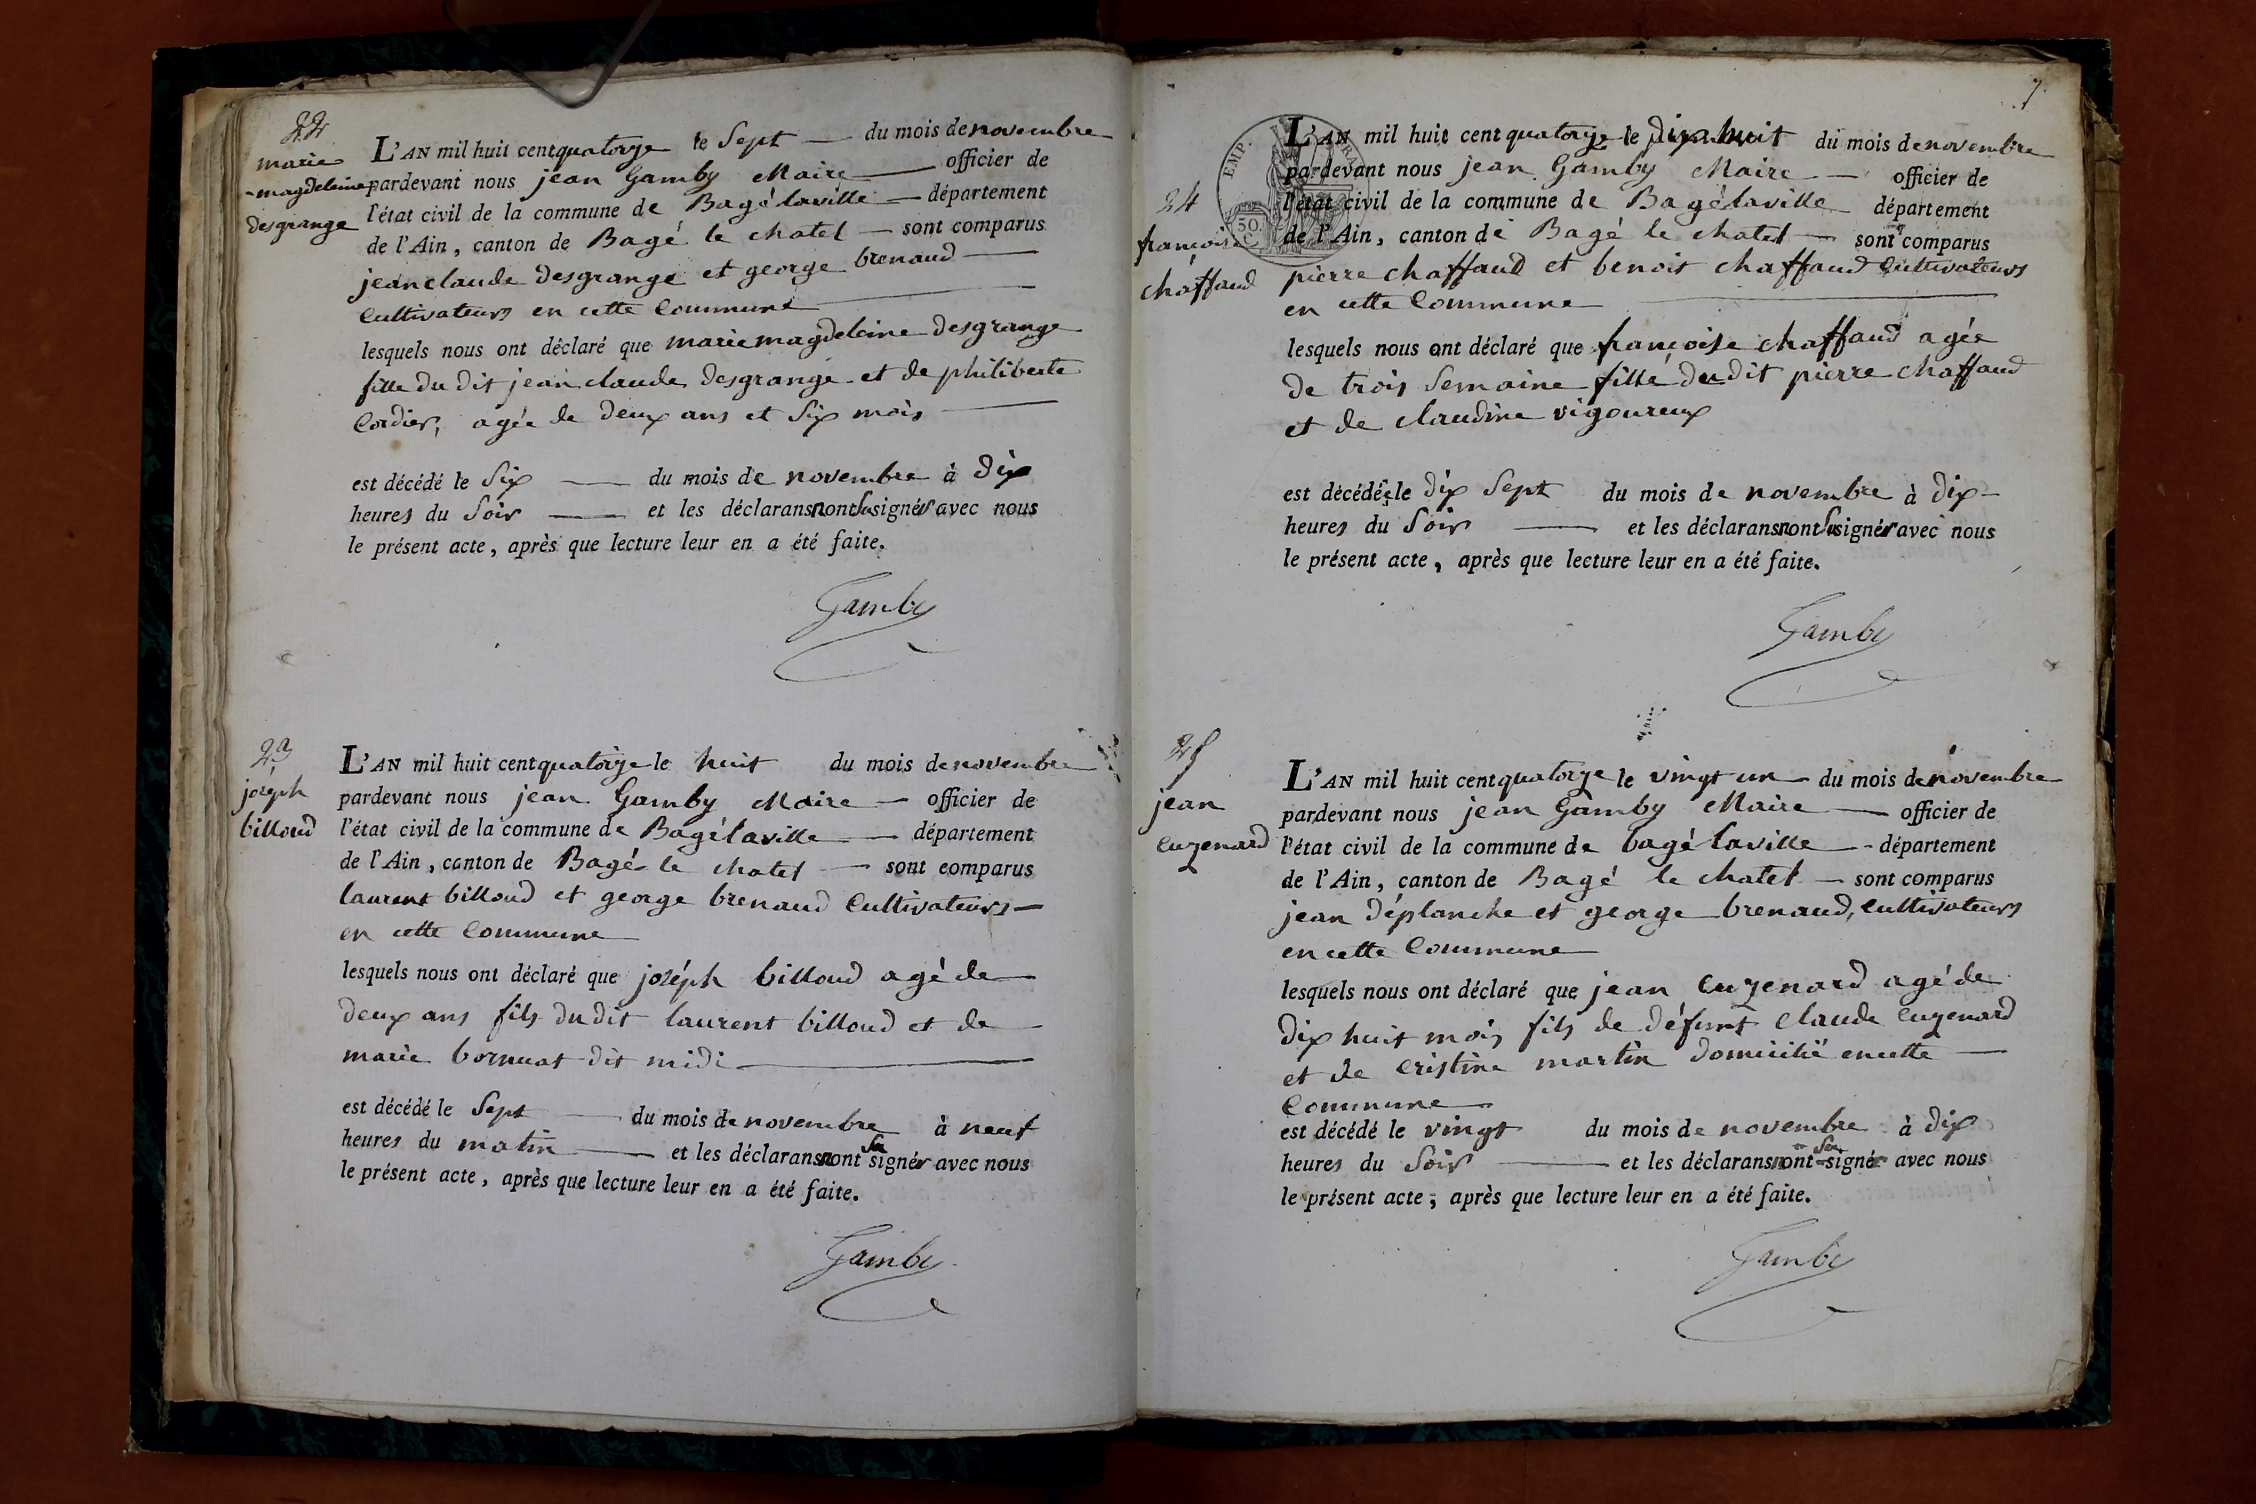 22
marie
magdeleine
desgrange
L'AN mil huit cent quatorze le Sept du mois de novembre
pardevant nous jean Gamby Maire officier de
l'état civil de la commune de Bagélaville département
de l'Ain, canton de Bagé le chatel sont comparus
jean claude desgrange et george brenaud
cultivateurs en cette commune
lesquels nous ont déclaré que marie magdeleine desgrange
fille du dit jean claude desgrange et de philiberte
Cordier, agée de deux ans et Six mois
est décédé le Six du mois de novembre à dix
heures du Soir et les déclarans nont Su signér avec nous
le présent acte, après que lecture leur en a été faite.
Gamby
23
joséph
billoud
L'AN mil huit cent quatorze le huit du mois de novembre
pardevant nous jean Gamby Maire officier de
l'état civil de la commune de Bagélaville département
de l'Ain, canton de Bagé le chatel sont comparus
laurent billoud et george brenaud Cultivateurs
en cette commune
lesquels nous ont déclaré que joséph billoud agé de
deux ans fils du dit laurent billoud et de
marie bornuat dit midi
est décédé le Sept du mois de novembre à neuf
heures du matin et les déclarans nont Su signér avec nous
le présent acte, après que lecture leur en a été faite.
Gamby
7
EMP.
50.
C.
24
françoise
chaffaud
L'AN mil huit cent quatorze le dix huit du mois de novembre
pardevant nous jean Gamby Maire officier de
l'état civil de la commune de Bagélaville département
de l'Ain, canton de Bagé le chatel sont comparus
pierre chaffaud et benoit chaffaud Cultivateurs
en cette Commune
lesquels nous ont déclaré que françoise chaffaud agée
de trois Semaine fille du dit pierre chaffaud
et de claudine vigoureux
est décédée le dix Sept du mois de novembre à dix
heures du Soir et les déclarans nont Su signér avec nous
le présent acte, après que lecture leur en a été faite.
Gamby
25
jean
cuzenard
L'AN mil huit cent quatorze le vingt un du mois de novembre
pardevant nous jean Gamby Maire officier de
l'état civil de la commune de bagélaville département
de l'Ain, canton de Bagé le chatel sont comparus
jean déplanche et george brenaud, cultivateurs
en cette Commune
lesquels nous ont déclaré que jean cuzenard agé de
dix huit mois fils de défunt Claude Cuzenard
et de cristine martin domicilié en cette
Commune
est décédé le vingt du mois de novembre à dix
heures du Soir et les déclarans nont Su signér avec nous
le présent acte, après que lecture leur en a été faite.
Gamby